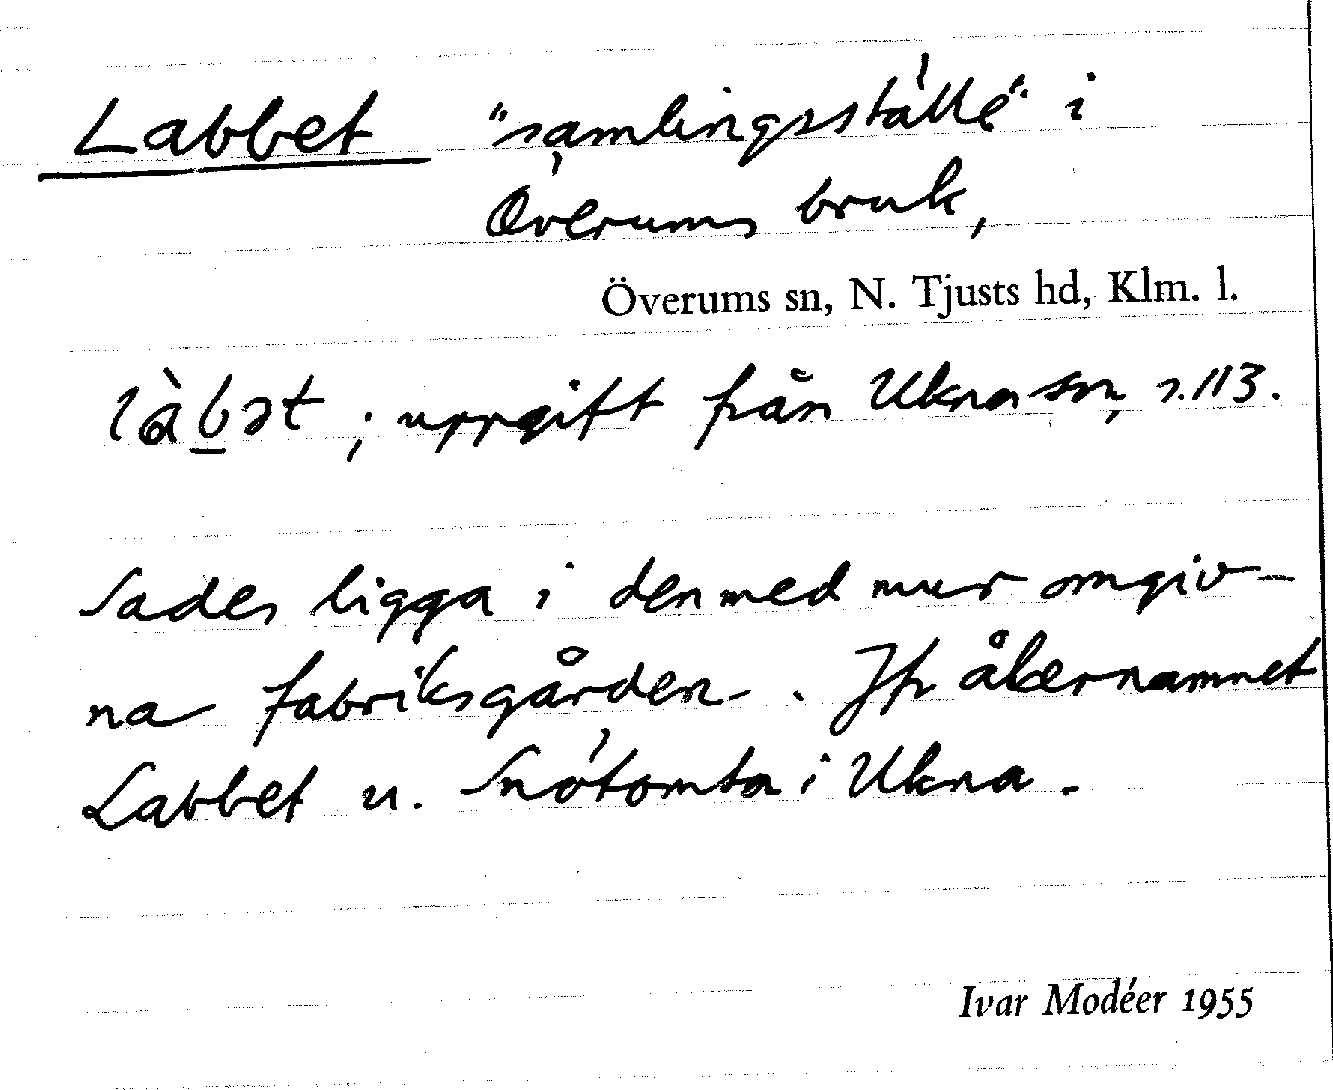 Labbet "samlingsställe" i
Överums bruk,
Överums sn, N. Tjusts hd, Klm. l.
làb̲ət ; uppgift från Ukna sn, s. 113.
Sades ligga i den med mur omgiv-
na fabriksgården. Jfr åkernamnet
Labbet u. Snötomta i Ukna.
Ivar Modéer 1955